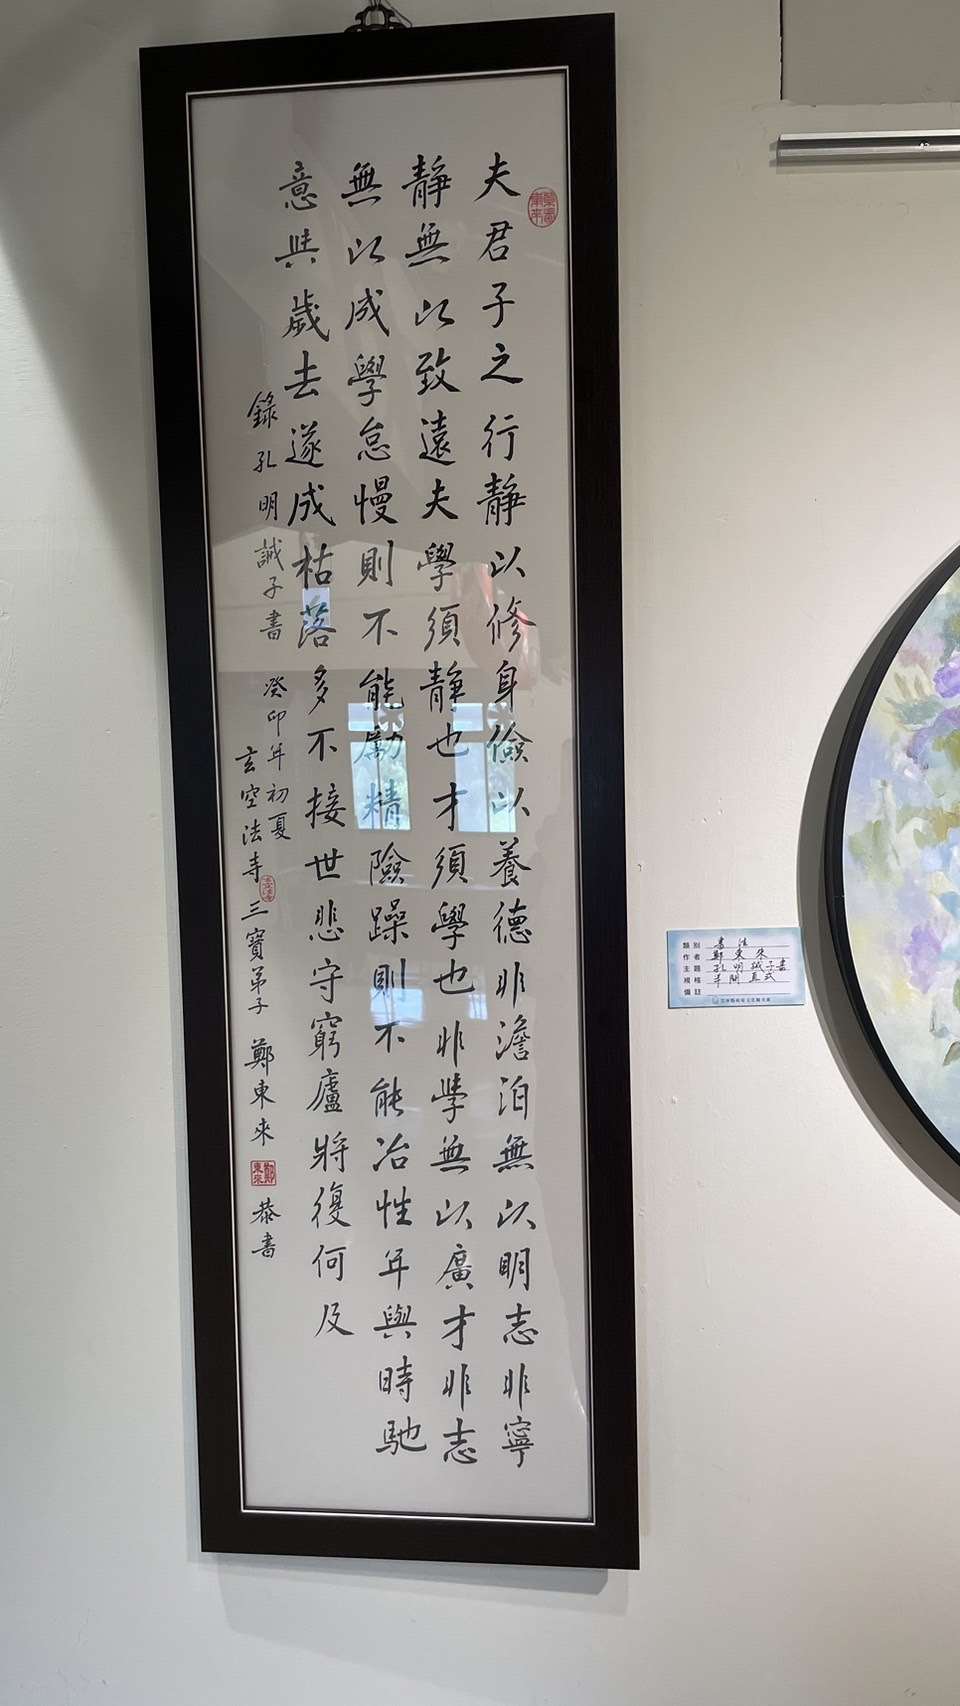 夫君子之行靜以修身儉以養德非澹泊無以明志非寧
靜無以致遠夫學須靜也才須學也非學無以廣才非志
無以成學怠慢則不能勵精險躁則不能冶性年與時馳
意與歲去遂成枯落多不接世悲守窮廬將復何及
錄孔明誡子書 癸卯年初夏
玄空法寺三寶弟子 鄭東來 恭書
類別 書法
作者 鄭東來
主題 孔明誡子書
規格 半開直式
備註